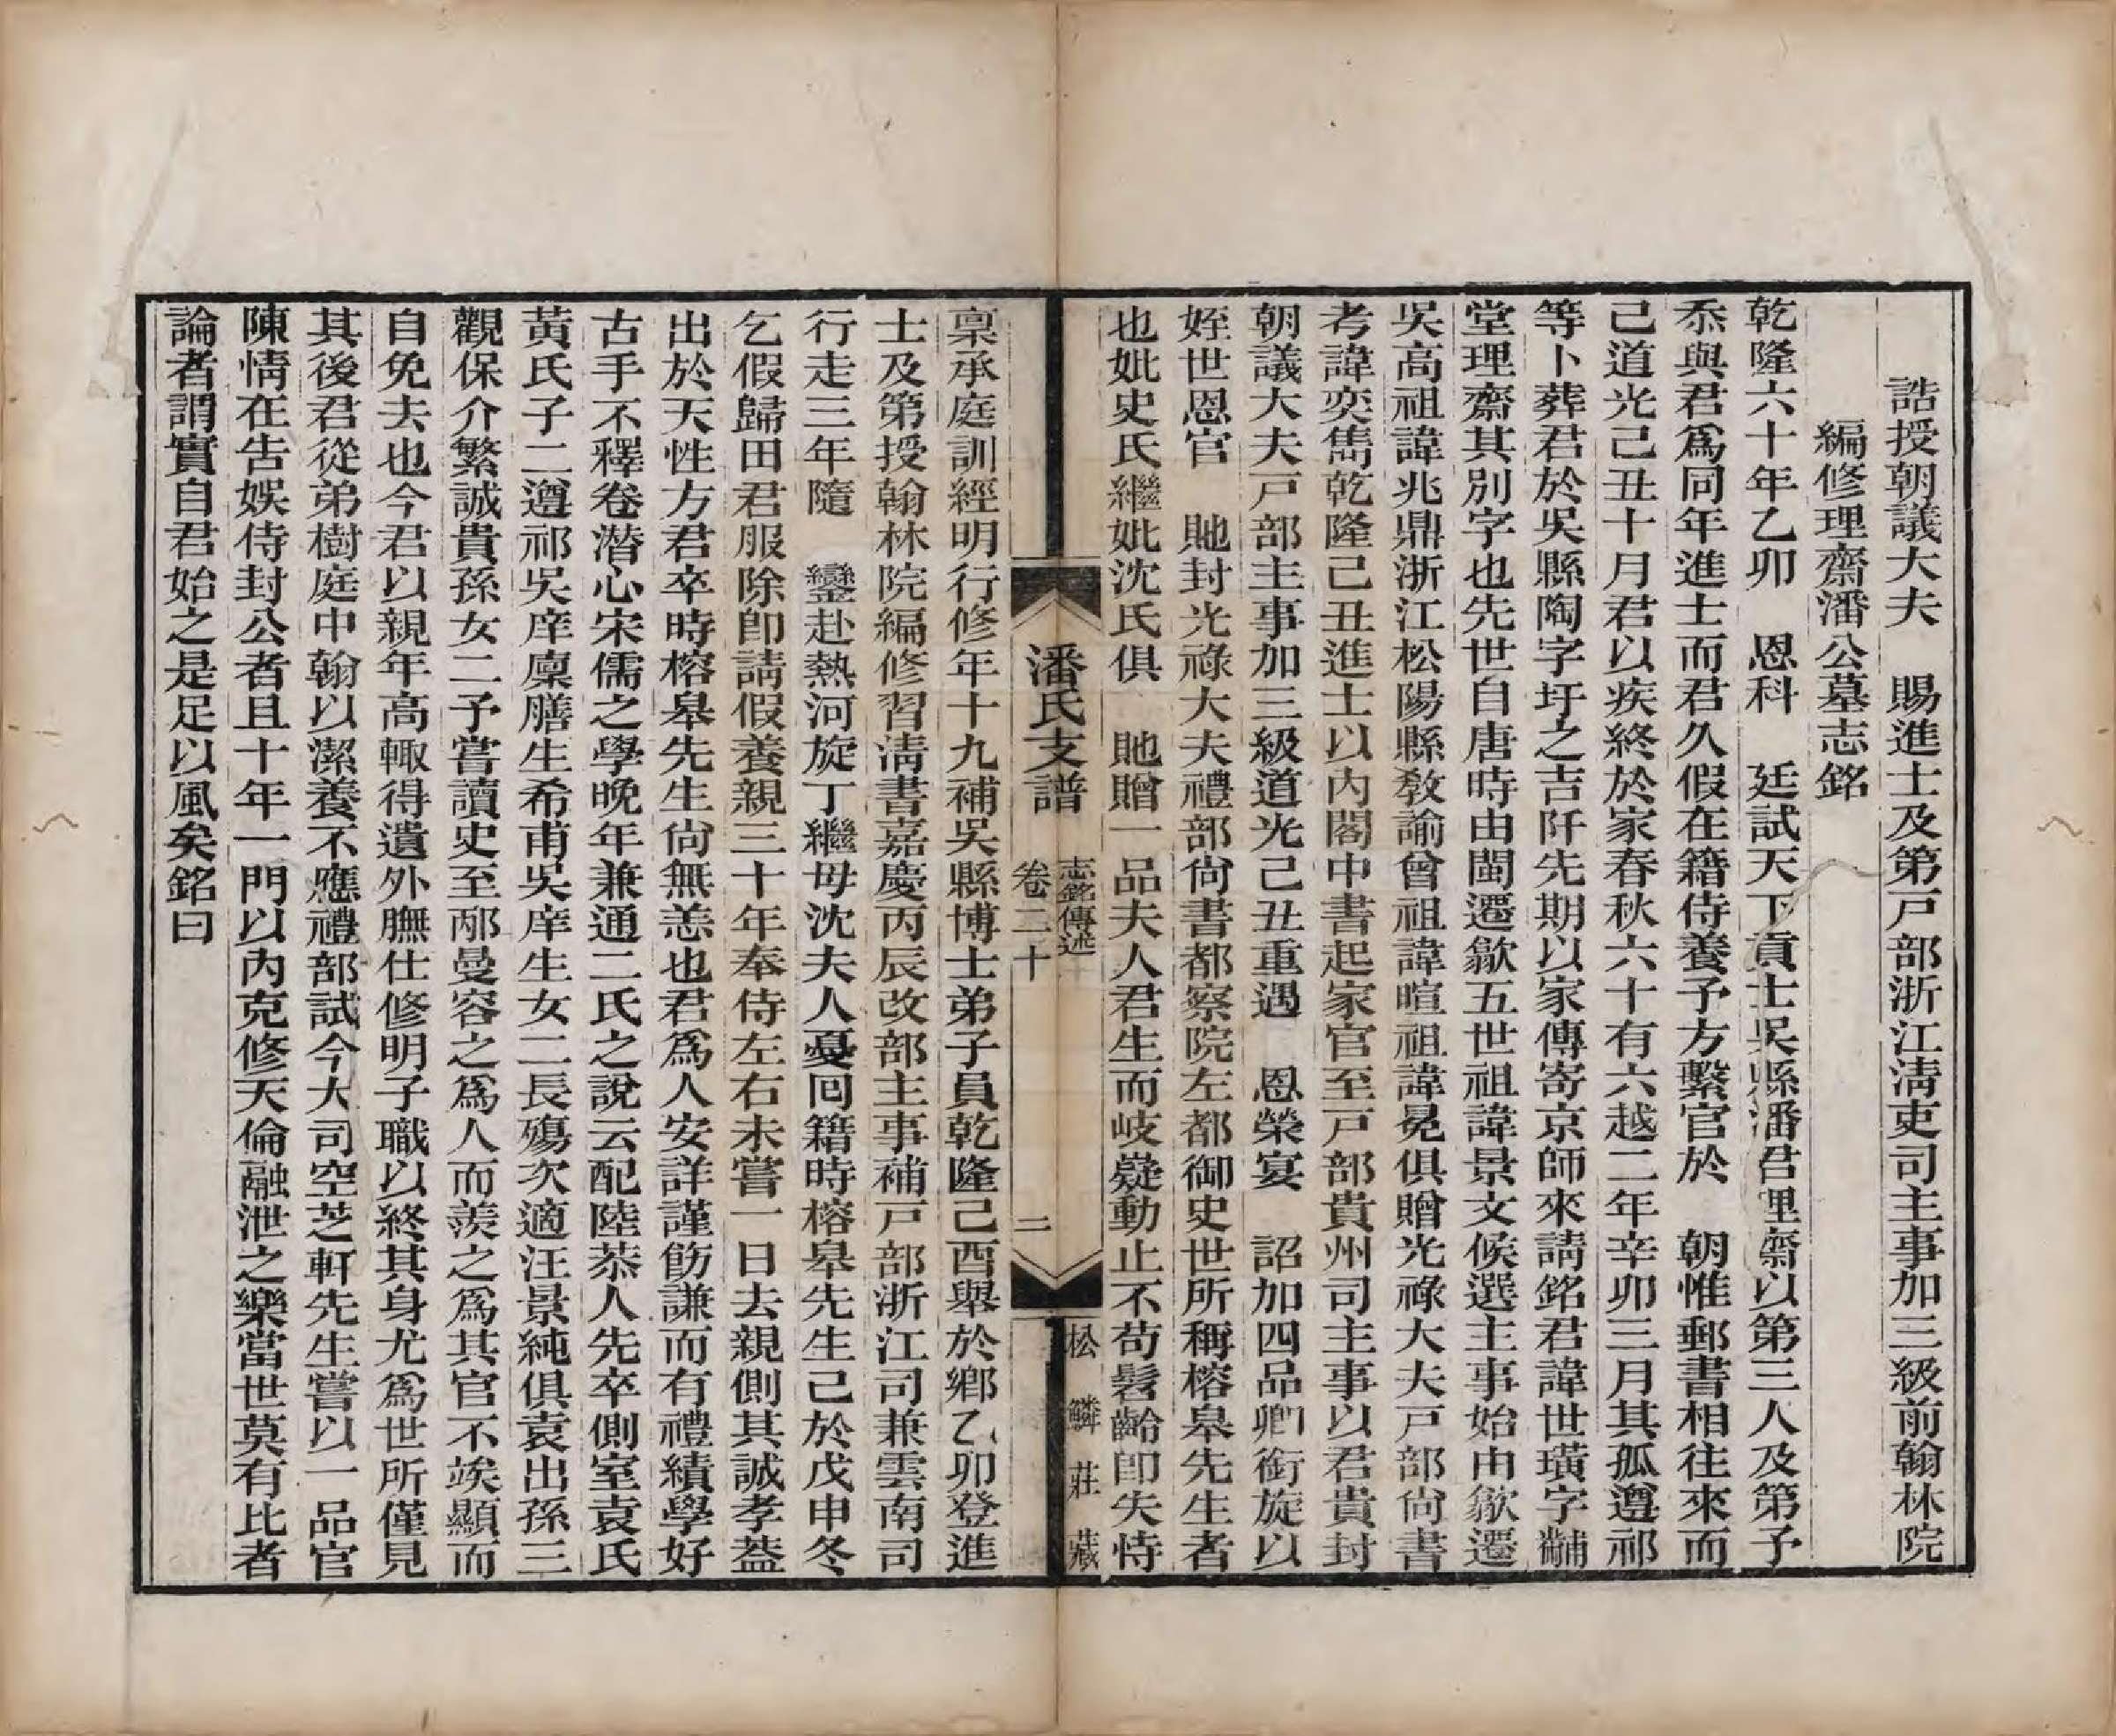 誥授朝議大夫　賜進士及第戸部浙江淸吏司主事加三級前翰林院
編修理齋潘公墓志銘
乾隆六十年乙卯　恩科　廷試天下貢士吳縣潘君理齋以第三人及第予
忝與君爲同年進士而君久假在籍侍養予方繫官於　朝惟郵書相往來而
己道光己丑十月君以疾終於家春秋六十有六越二年辛卯三月其孤遵祁
等卜葬君於吳縣陶字圩之吉阡先期以家傳寄京師來請銘君諱世璜字黼
堂理齋其別字也先世自唐時由閩遷歙五世祖諱景文候選主事始由歙遷
吳高祖諱兆鼎浙江松陽縣敎諭曾祖諱暄祖諱冕俱贈光祿大夫戸部尙書
考諱奕雋乾隆己丑進士以內閣中書起家官至戸部貴州司主事以君貴封
朝議大夫戸部主事加三級道光己丑重遇　恩榮宴　詔加四品卿銜旋以
姪世恩官　貤封光祿大夫禮部尙書都察院左都御史世所稱榕皋先生者
也妣史氏繼妣沈氏俱　貤贈一品夫人君生而岐嶷動止不苟髫齡卽失恃
潘氏支譜
志銘傳述
卷二十
二
松鱗莊藏
稟承庭訓經明行修年十九補吳縣博士弟子員乾隆己酉舉於鄕乙卯登進
士及第授翰林院編修習淸書嘉慶丙辰改部主事補戸部浙江司兼雲南司
行走三年隨　鑾赴熱河旋丁繼母沈夫人憂囘籍時榕皋先生己於戊申冬
乞假歸田君服除卽請假養親三十年奉侍左右未嘗一日去親側其誠孝葢
出於天性方君卒時榕皋先生尙無恙也君爲人安詳謹飭謙而有禮績學好
古手不釋卷潛心宋儒之學晚年兼通二氏之說云配陸恭人先卒側室袁氏
黃氏子二遵祁吳庠廩膳生希甫吳庠生女二長殤次適汪景純俱袁出孫三
觀保介繁誠貴孫女二予嘗讀史至邴曼容之爲人而羨之爲其官不竢顯而
自免去也今君以親年高輙得遺外膴仕修明子職以終其身尤爲世所僅見
其後君從弟樹庭中翰以潔養不應禮部試今大司空芝軒先生嘗以一品官
陳情在告娛侍封公者且十年一門以內克修天倫融泄之樂當世莫有比者
論者謂實自君始之是足以風矣銘曰